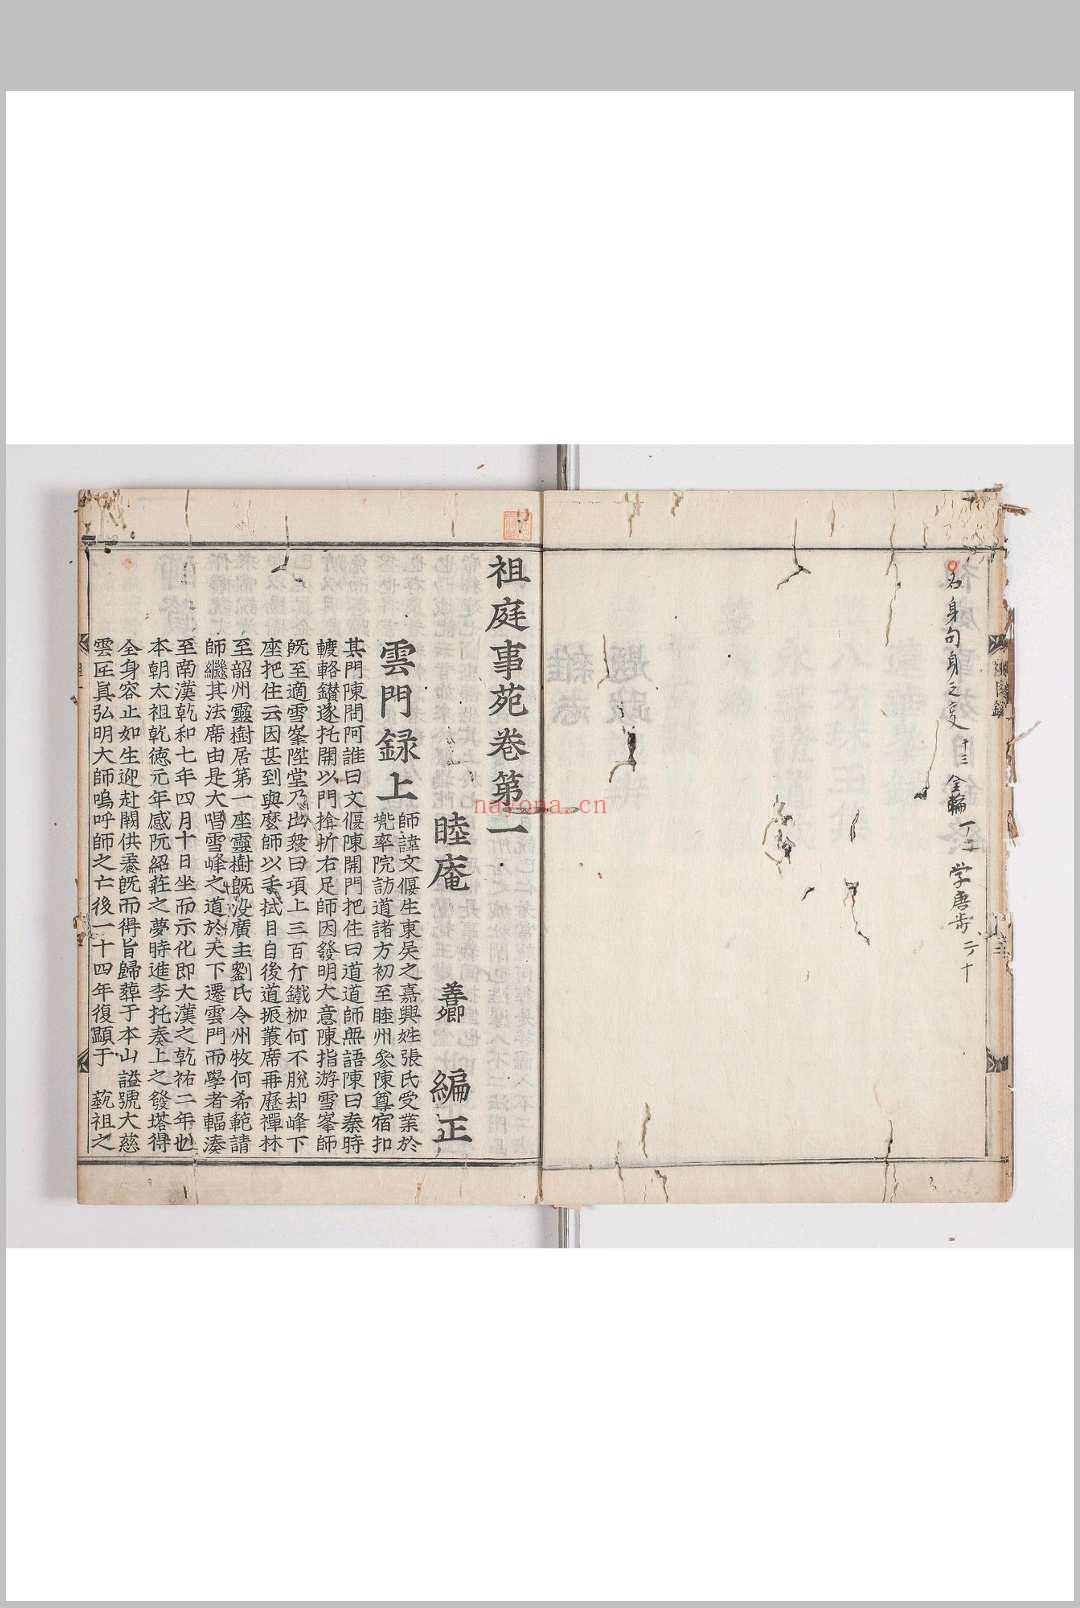 名身句身之文 十三 金輪 学唐步 二十
祖庭事苑卷第一
睦庵 善卿 編正
雲門録上
師諱文偃生東吳之嘉興姓張氏受業於
兠率院訪道諸方初至睦州參陳尊宿扣
其門陳問阿誰曰文偃陳開門把住曰道道師無語陳曰秦時
䡾轢鑚遂托開以門揜折右足師因發明大意陳指游雪峯師
既至適雪峯陞堂乃出衆曰項上三百斤鐵枷何不脫却峰下
座把住云因甚到與麽師以手拭目自後道振叢席再歷禪林
至韶州靈樹居第一座靈樹既沒廣主劉氏令州牧何希範請
師繼其法席由是大唱雪峰之道於天下遷雲門而學者輻湊
至南漢乾和七年四月十日坐而示化即大漢之乾祐二年也
本朝太祖乾德元年感阮紹莊之夢時進李托奏上之發塔得
全身容止如生迎赴闕供養既而得旨歸葬于本山謚號大慈
雲匡眞弘明大師嗚呼師之亡後一十四年復顯于 藝祖之
nayona.cn